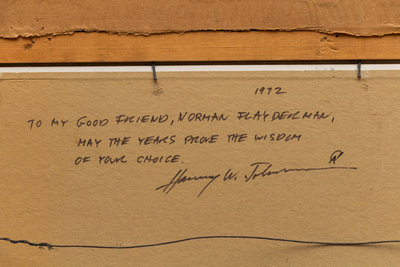 1972
TO MY GOOD FRIEND, NORMAN FLAYDERMAN,
MAY THE YEARS PROVE THE WISDOM
OF YOUR CHOICE.
Harvey W. Johnson